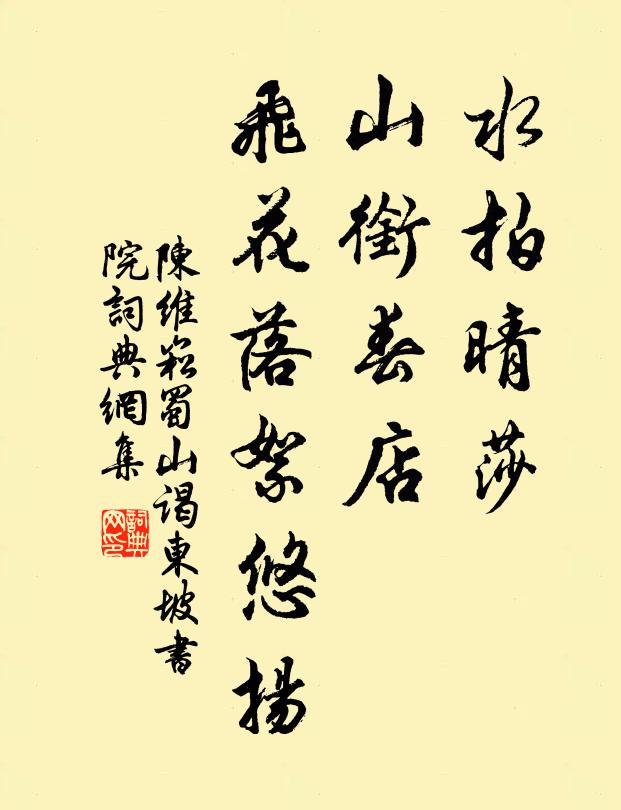 水拍晴莎
山銜春店
飛花落絮悠揚
陳維崧蜀山謁東坡書
院詞典網集
詞典網印